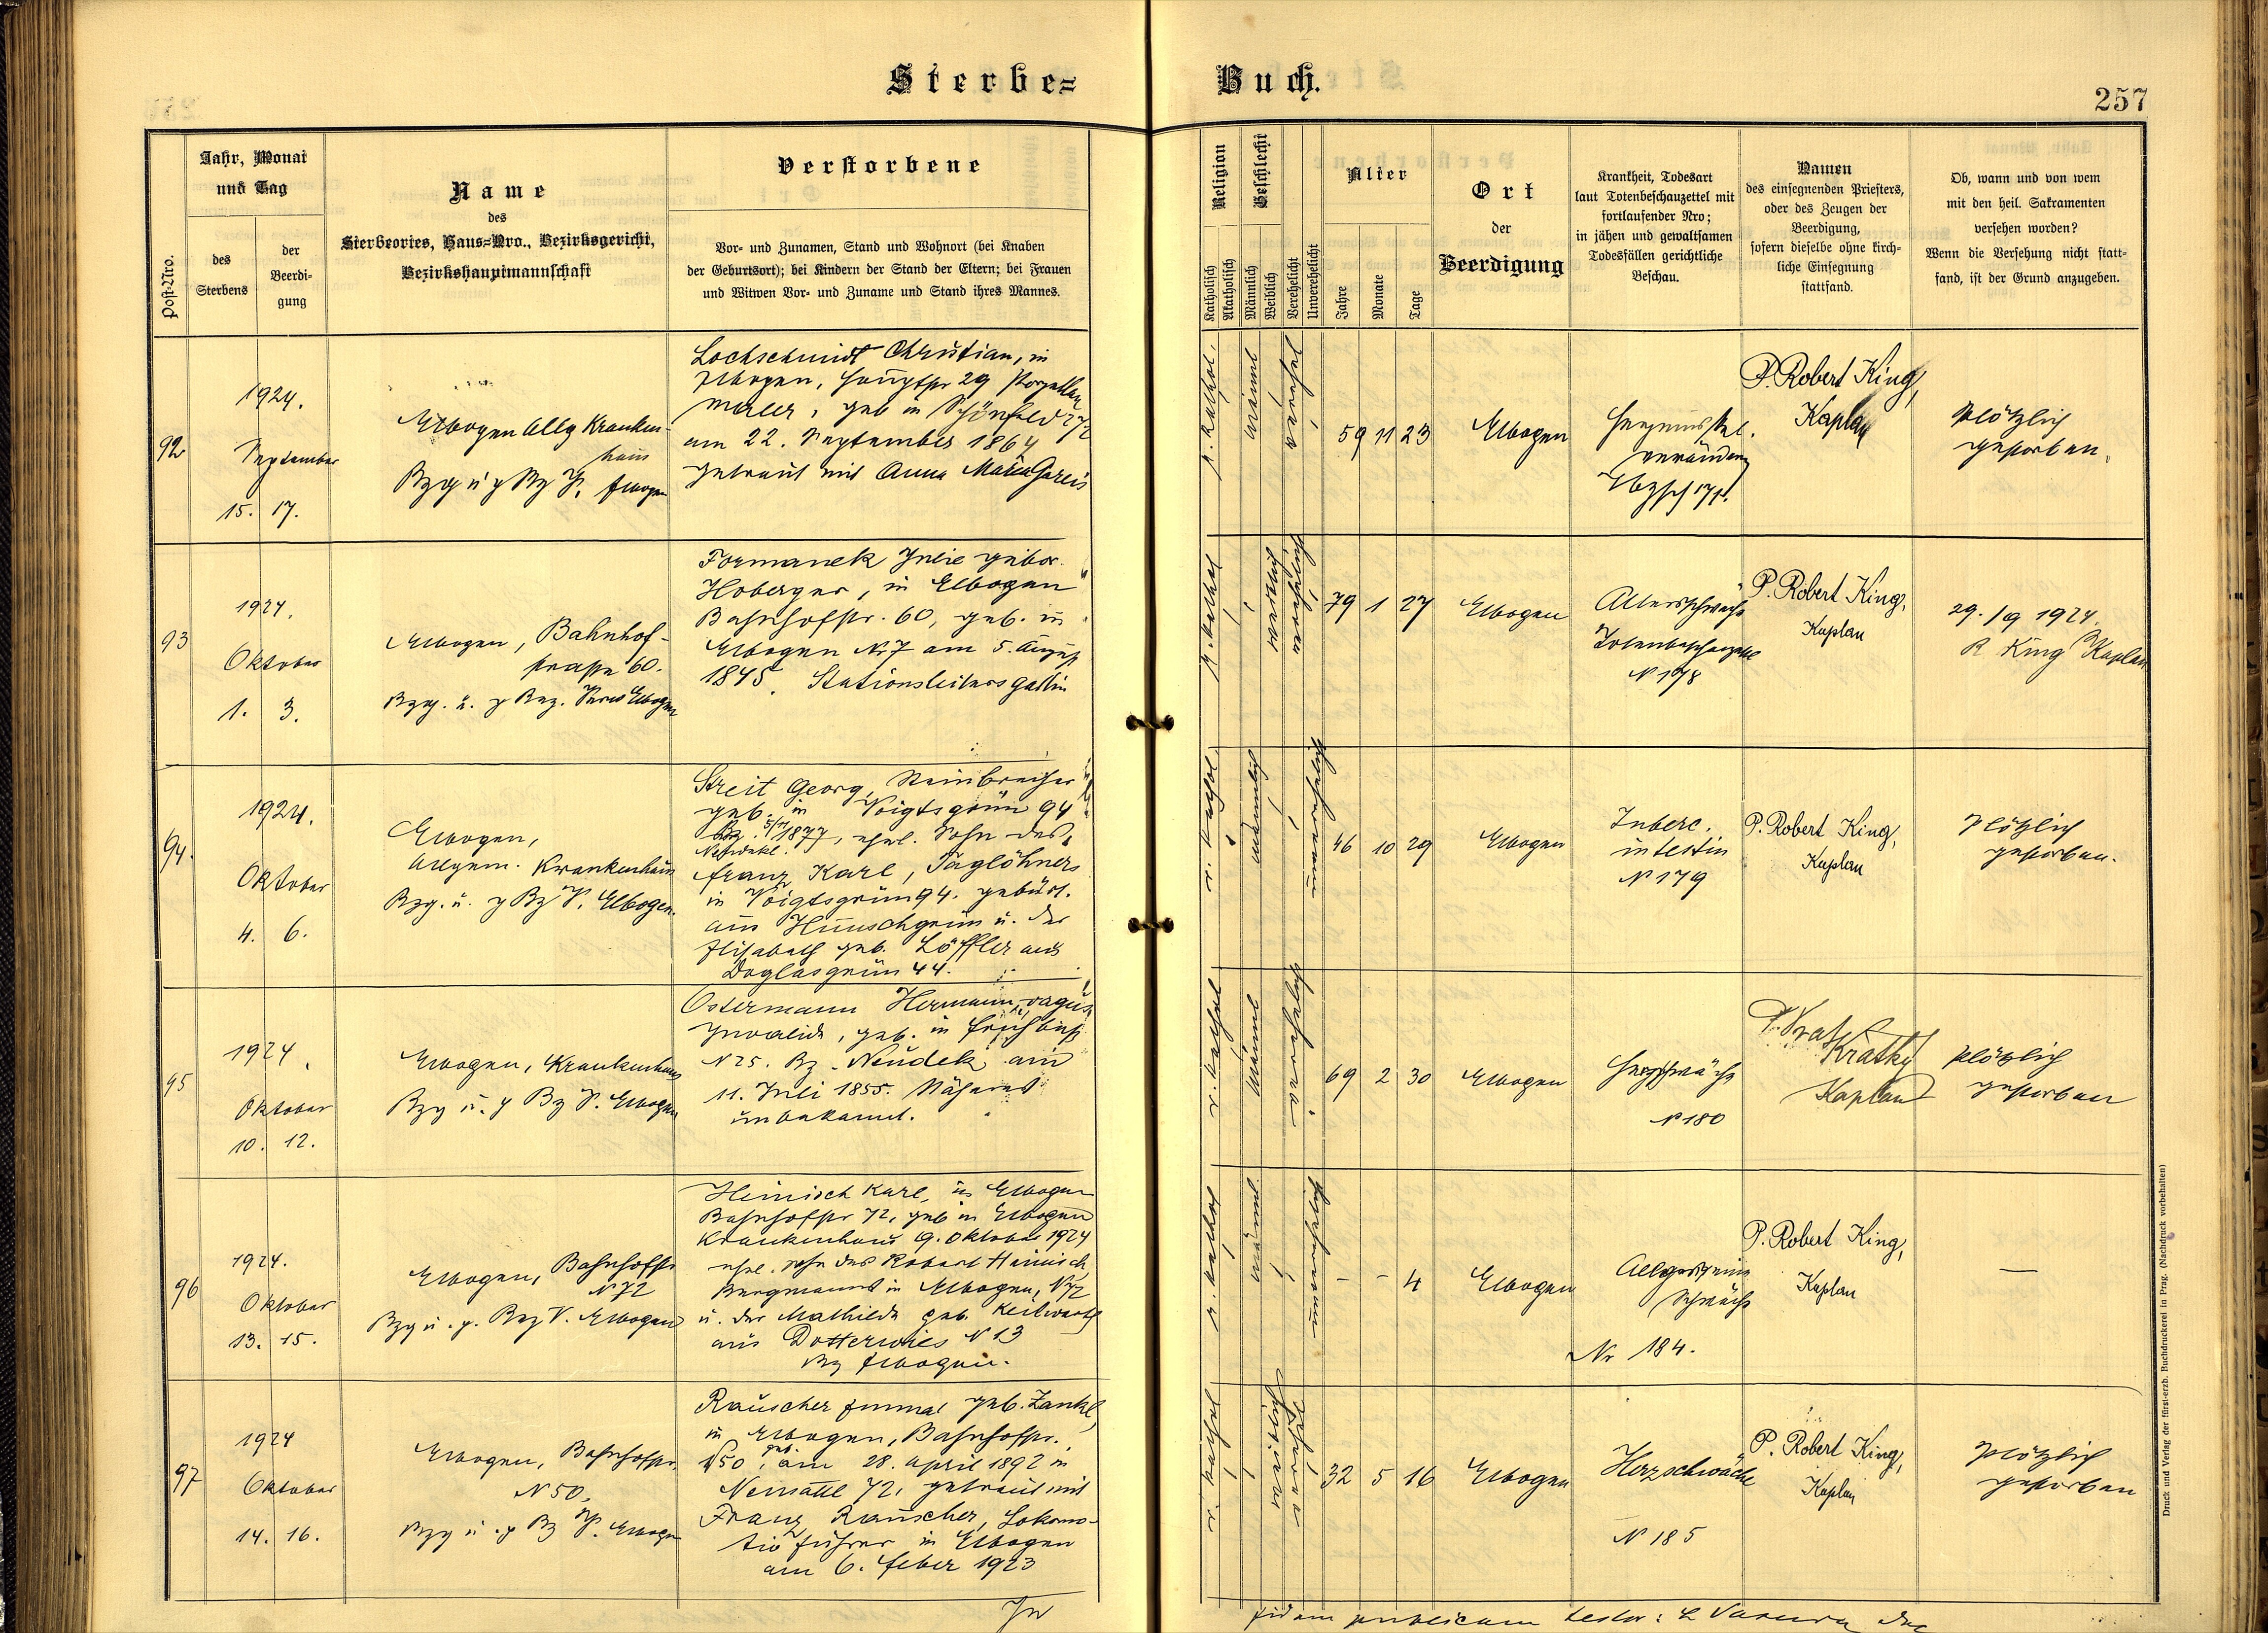 Sterbe=
Buch.
257
Post-Nro.
Jahr, Monat
und Tag
des
Sterbens
der
Beerdi-
gung
Name
des
Sterbeortes, Haus=Nro., Bezirksgericht,
Bezirkshauptmannschaft
Verstorbene
Vor= und Zunamen, Stand und Wohnort (bei Knaben
der Geburtsort); bei Kindern der Stand der Eltern; bei Frauen
und Witwen Vor= und Zuname und Stand ihres Mannes.
Religion
Katholisch
Akatholisch
Geschlecht
Männlich
Weiblich
Verehelicht
Unverehelicht
Alter
Jahre
Monate
Tage
Ort
der
Beerdigung
Krankheit, Todesart
laut Totenbeschauzettel mit
fortlaufender Nro;
in jähen und gewaltsamen
Todesfällen gerichtliche
Beschau.
Namen
des einsegnenden Priesters,
oder des Zeugen der
Beerdigung,
sofern dieselbe ohne kirch-
liche Einsegnung
stattfand.
Ob, wann und von wem
mit den heil. Sakramenten
versehen worden?
Wenn die Versehung nicht statt-
fand, ist der Grund anzugeben.
92
1924.
September
15. 17.
Elbogen Allg Kranken-
haus
Elbogen
Lochschmidt Christian, in
Elbogen, 29 Porzellan
maler, geb in Schönfeld
am 22. September 1864
getraut mit Anna Maria Gareis
r. kathol.
männl
verehel
59 11 23
Elbogen
P. Robert King,
Kaplan
Plötzlich
gestorben.
93
1924.
Oktober
1. 3.
Elbogen, Bahnhof-
straße 60.
Elbogen
Formanek Julie gebor.
Hoberger, in Elbogen
Bahnhofstr. 60, geb. in
Elbogen N. 7 am 5. August
1845. Stationsleitersgattin
r. kathol
weiblich
79 1 27
Elbogen
Altersschwäche
Totenbeschauzettel
N 178
P. Robert King,
Kaplan
29./9 1924.
R King Kaplan
94.
1924.
Oktober
4. 6.
Elbogen,
Allgem. Krankenhaus
Bzg. u. Bz V. Elbogen.
Streit Georg, Steinbrecher
geb. in Voigtsgrün 94
Bz. 5/11 1877, ehel. Sohn des
Neudek.
Franz Karl, Taglöhners
in Voigtsgrün 94. gebürt.
aus u. der
Elisabeth geb. Löffler aus
Doglasgrün 44.
r. kathol.
männlich
46 10 29
Elbogen
Tuberc.
intestin
N 179
P. Robert King,
Kaplan
Plötzlich
gestorben.
95
1924.
Oktober
10. 12.
Elbogen, Krankenhaus
Elbogen
Ostermann Hermann,
Invalide, geb. in
N 25. Bz. Neudek am
11. Juli 1855. Näheres
unbekannt.
r. kathol
männl
69 2 30
Elbogen
Herzschwäche
N 180
Kratky
Kaplan
Plötzlich
gestorben
96
1924.
Oktober
13. 15.
Elbogen, Bahnhofstr
N 72
Elbogen
Heinisch Karl, in Elbogen
Bahnhofstr 72, geb in Elbogen
Krankenhaus 9. Oktober 1924
ehel. Sohn des Robert Heinisch
Bergmanns in Elbogen, N 72
u. der Mathilde geb. Keilwerth
aus Dotterwies N 13
Bz Elbogen.
r. kathol
männl
- - 4
Elbogen
Allgemeine
Schwäche
Nr 184.
P. Robert King,
Kaplan
—
97
1924
Oktober
14. 16.
Elbogen, Bahnhofstr.
N 50.
Elbogen
Rauscher Emma geb. Zankl,
in Elbogen, Bahnhofstr.
N 50, geb. am 28. April 1892 in
Neusattl 72, getraut mit
Franz Rauscher, Lokomo-
tivführer in Elbogen
am 6. Feber 1923
r. kathol
weiblich
32 5 16
Elbogen
Herzschwäche
N 185
P. Robert King,
Kaplan
Plötzlich
gestorben
In
fidem publicam testor:
Druck und Verlag der fürst-erzb. Buchdruckerei in Prag. (Nachdruck vorbehalten)